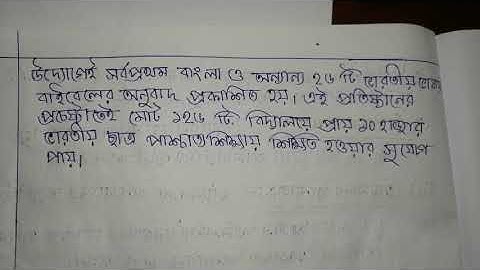 উদ্যোগেই সর্বপ্রথম বাংলা ও অন্যান্য ২৬ টি ভারতীয় ভাষায়
বাইবেলের অনুবাদ প্রকাশিত হয়। এই প্রতিষ্ঠানের
প্রচেষ্টাতেই মোট ১২৬ টি বিদ্যালয়ে প্রায় ১০ হাজার
ভারতীয় ছাত্র পাশ্চাত্যশিক্ষায় শিক্ষিত হওয়ার সুযোগ
পায়।